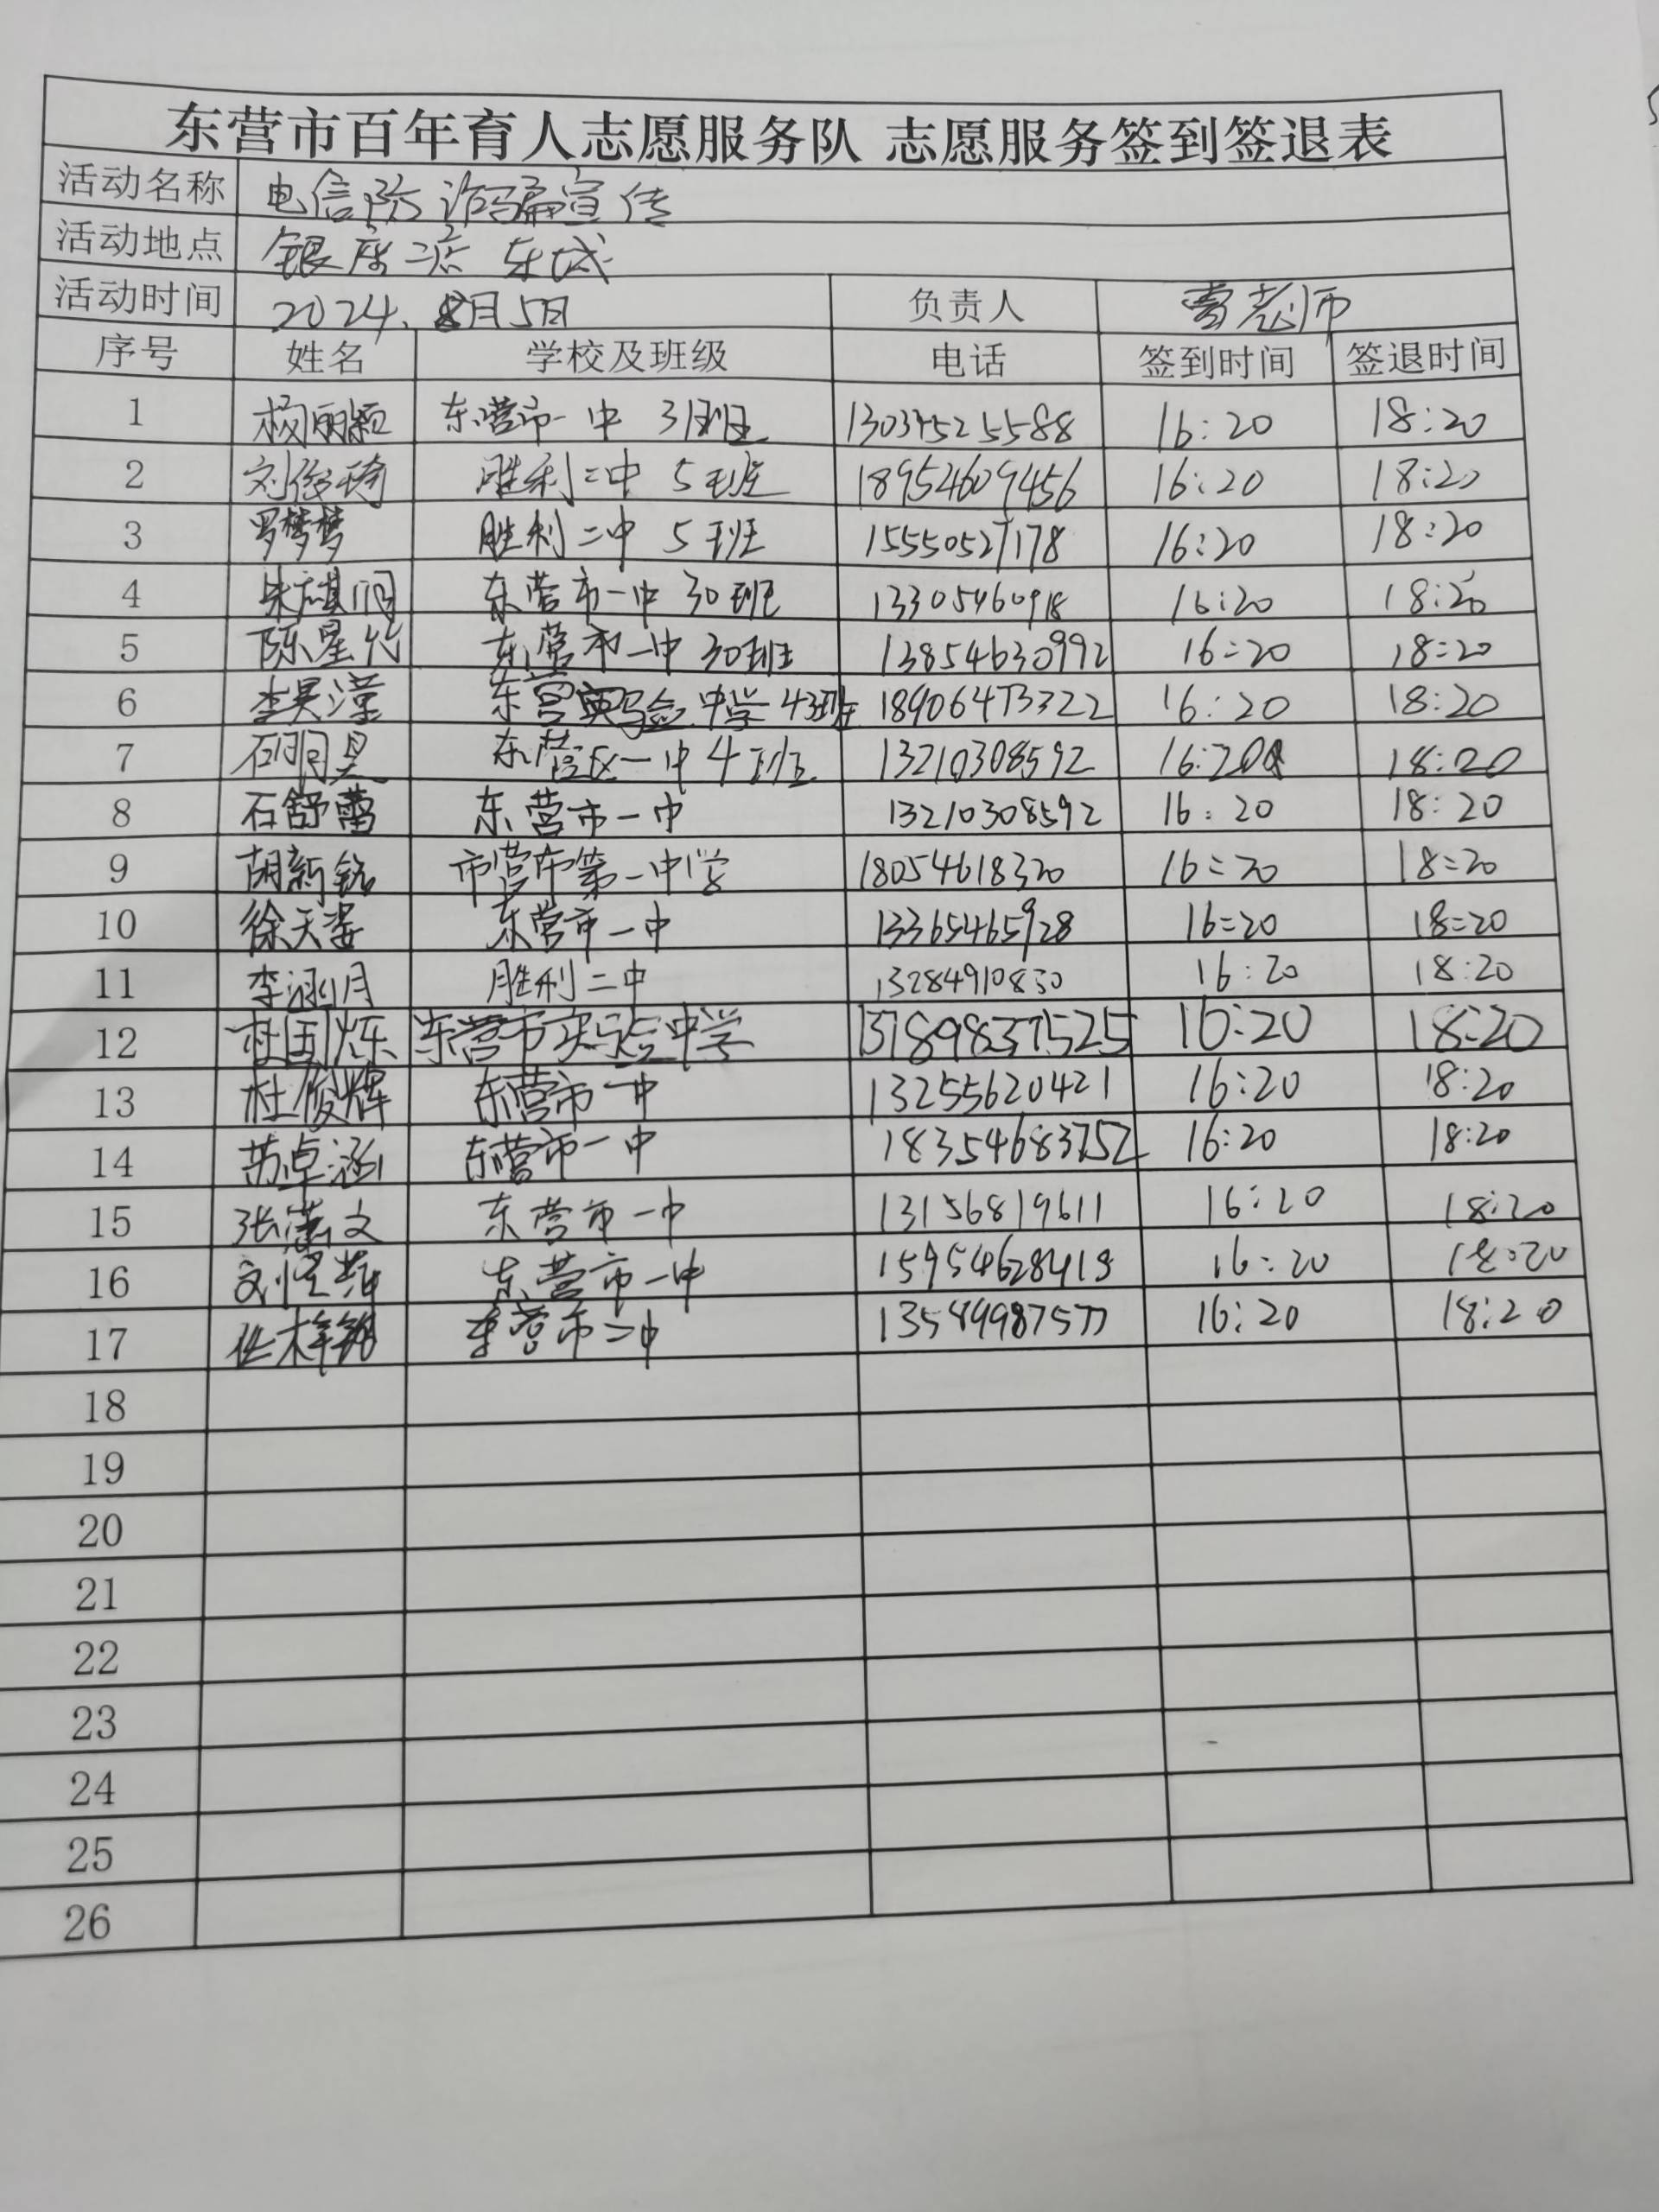 东营市百年育人志愿服务队 志愿服务签到签退表
活动名称 电信防诈骗宣传
活动地点 银座二店 东城
活动时间 2024.8月5日 负责人 曹老师
序号 姓名 学校及班级 电话 签到时间 签退时间
1 杨丽颖 东营市一中 31班 16:20 18:20
2 刘俊琦 胜利二中 5班 18954609456 16:20 18:20
3 罗梦梦 胜利二中 5班 15550527178 16:20 18:20
4 东营市一中 30班 13305460918 16:20 18:20
5 陈星竹 东营市一中 30班 13854630992 16:20 18:20
6 李昊潼 东营实验中学 43班 18906473322 16:20 18:20
7 石明昊 东营区一中 4班 13210308592 16:20 18:20
8 石舒蕾 东营市一中 13210308592 16:20 18:20
9 胡新铭 市营市第一中学 18054618320 16:20 18:20
10 徐天姿 东营市一中 13365465928 16:20 18:20
11 李涵月 胜利二中 13284910830 16:20 18:20
12 杜国烁 东营市实验中学 13789837525 16:20 18:20
13 杜俊辉 东营市一中 13255620421 16:20 18:20
14 苏卓涵 东营市一中 18354683752 16:20 18:20
15 张 文 东营市一中 13156819611 16:20 18:20
16 刘 东营市一中 15954628418 16:20 18:20
17 任梓铭 东营市二中 13589987577 16:20 18:20
18
19
20
21
22
23
24
25
26